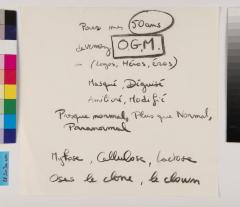 Pour mes 50 ans
devenez O.G.M.
(Logos, Héros, Éros)
Masqué, Déguisé
Amélioré, Modifié
Presque normal, Plus que Normal,
Paranormal
Mythose, Cellulose, Lactose
Osez le clone, le clown